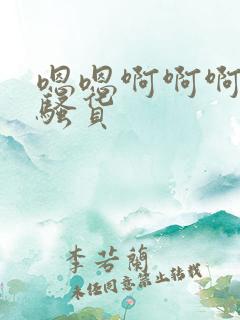 嗯嗯啊啊啊
骚货
李若兰
未经同意禁止转载